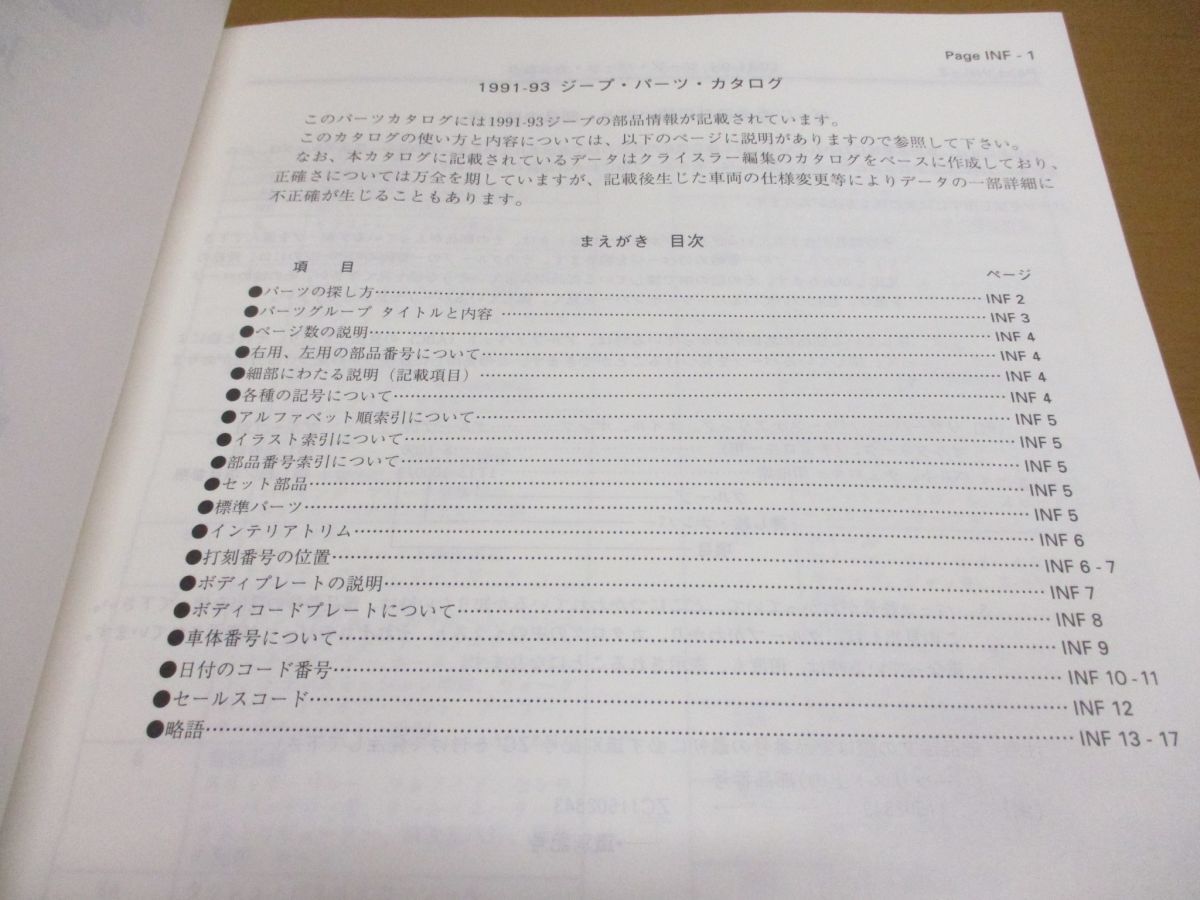 Page INF - 1
1991-93 ジープ・パーツ・カタログ
このパーツカタログには1991-93ジープの部品情報が記載されています。
このカタログの使い方と内容については、以下のページに説明がありますので参照して下さい。
なお、本カタログに記載されているデータはクライスラー編集のカタログをベースに作成しており、
正確さについては万全を期していますが、記載後生じた車両の仕様変更等によりデータの一部詳細に
不正確が生じることもあります。
まえがき 目次
項 目 ページ
●パーツの探し方 INF 2
●パーツグループ タイトルと内容 INF 3
●ページ数の説明 INF 4
●右用、左用の部品番号について INF 4
●細部にわたる説明（記載項目） INF 4
●各種の記号について INF 4
●アルファベット順索引について INF 5
●イラスト索引について INF 5
●部品番号索引について INF 5
●セット部品 INF 5
●標準パーツ INF 5
●インテリアトリム INF 6
●打刻番号の位置 INF 6 - 7
●ボディプレートの説明 INF 7
●ボディコードプレートについて INF 8
●車体番号について INF 9
●日付のコード番号 INF 10 - 11
●セールスコード INF 12
●略語 INF 13 - 17